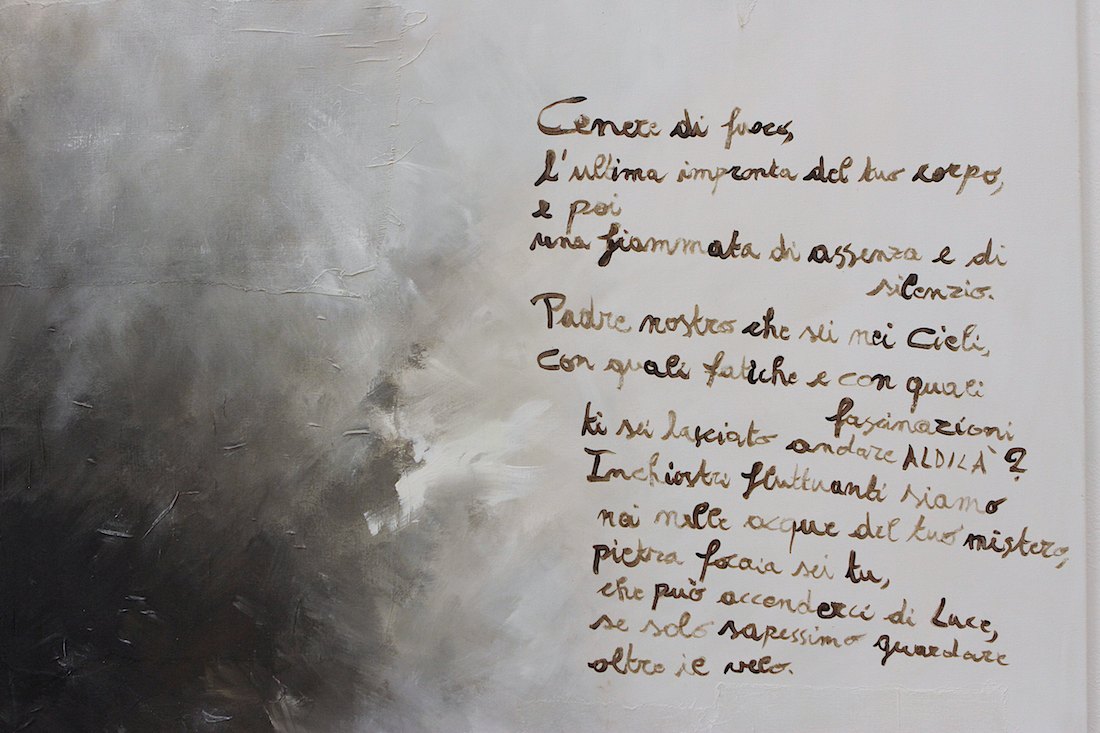 Cenere di fuoco,
l'ultima impronta del tuo corpo,
e poi
una fiammata di assenza e di
silenzio.
Padre nostro che sei nei Cieli,
con quali fatiche e con quali
fascinazioni
ti sei lasciato andare ALDILÀ?
Inchiostri fluttuanti siamo
noi nelle acque del tuo mistero,
pietra focaia sei tu,
che può accenderci di Luce,
se solo sapessimo guardare
oltre il velo.